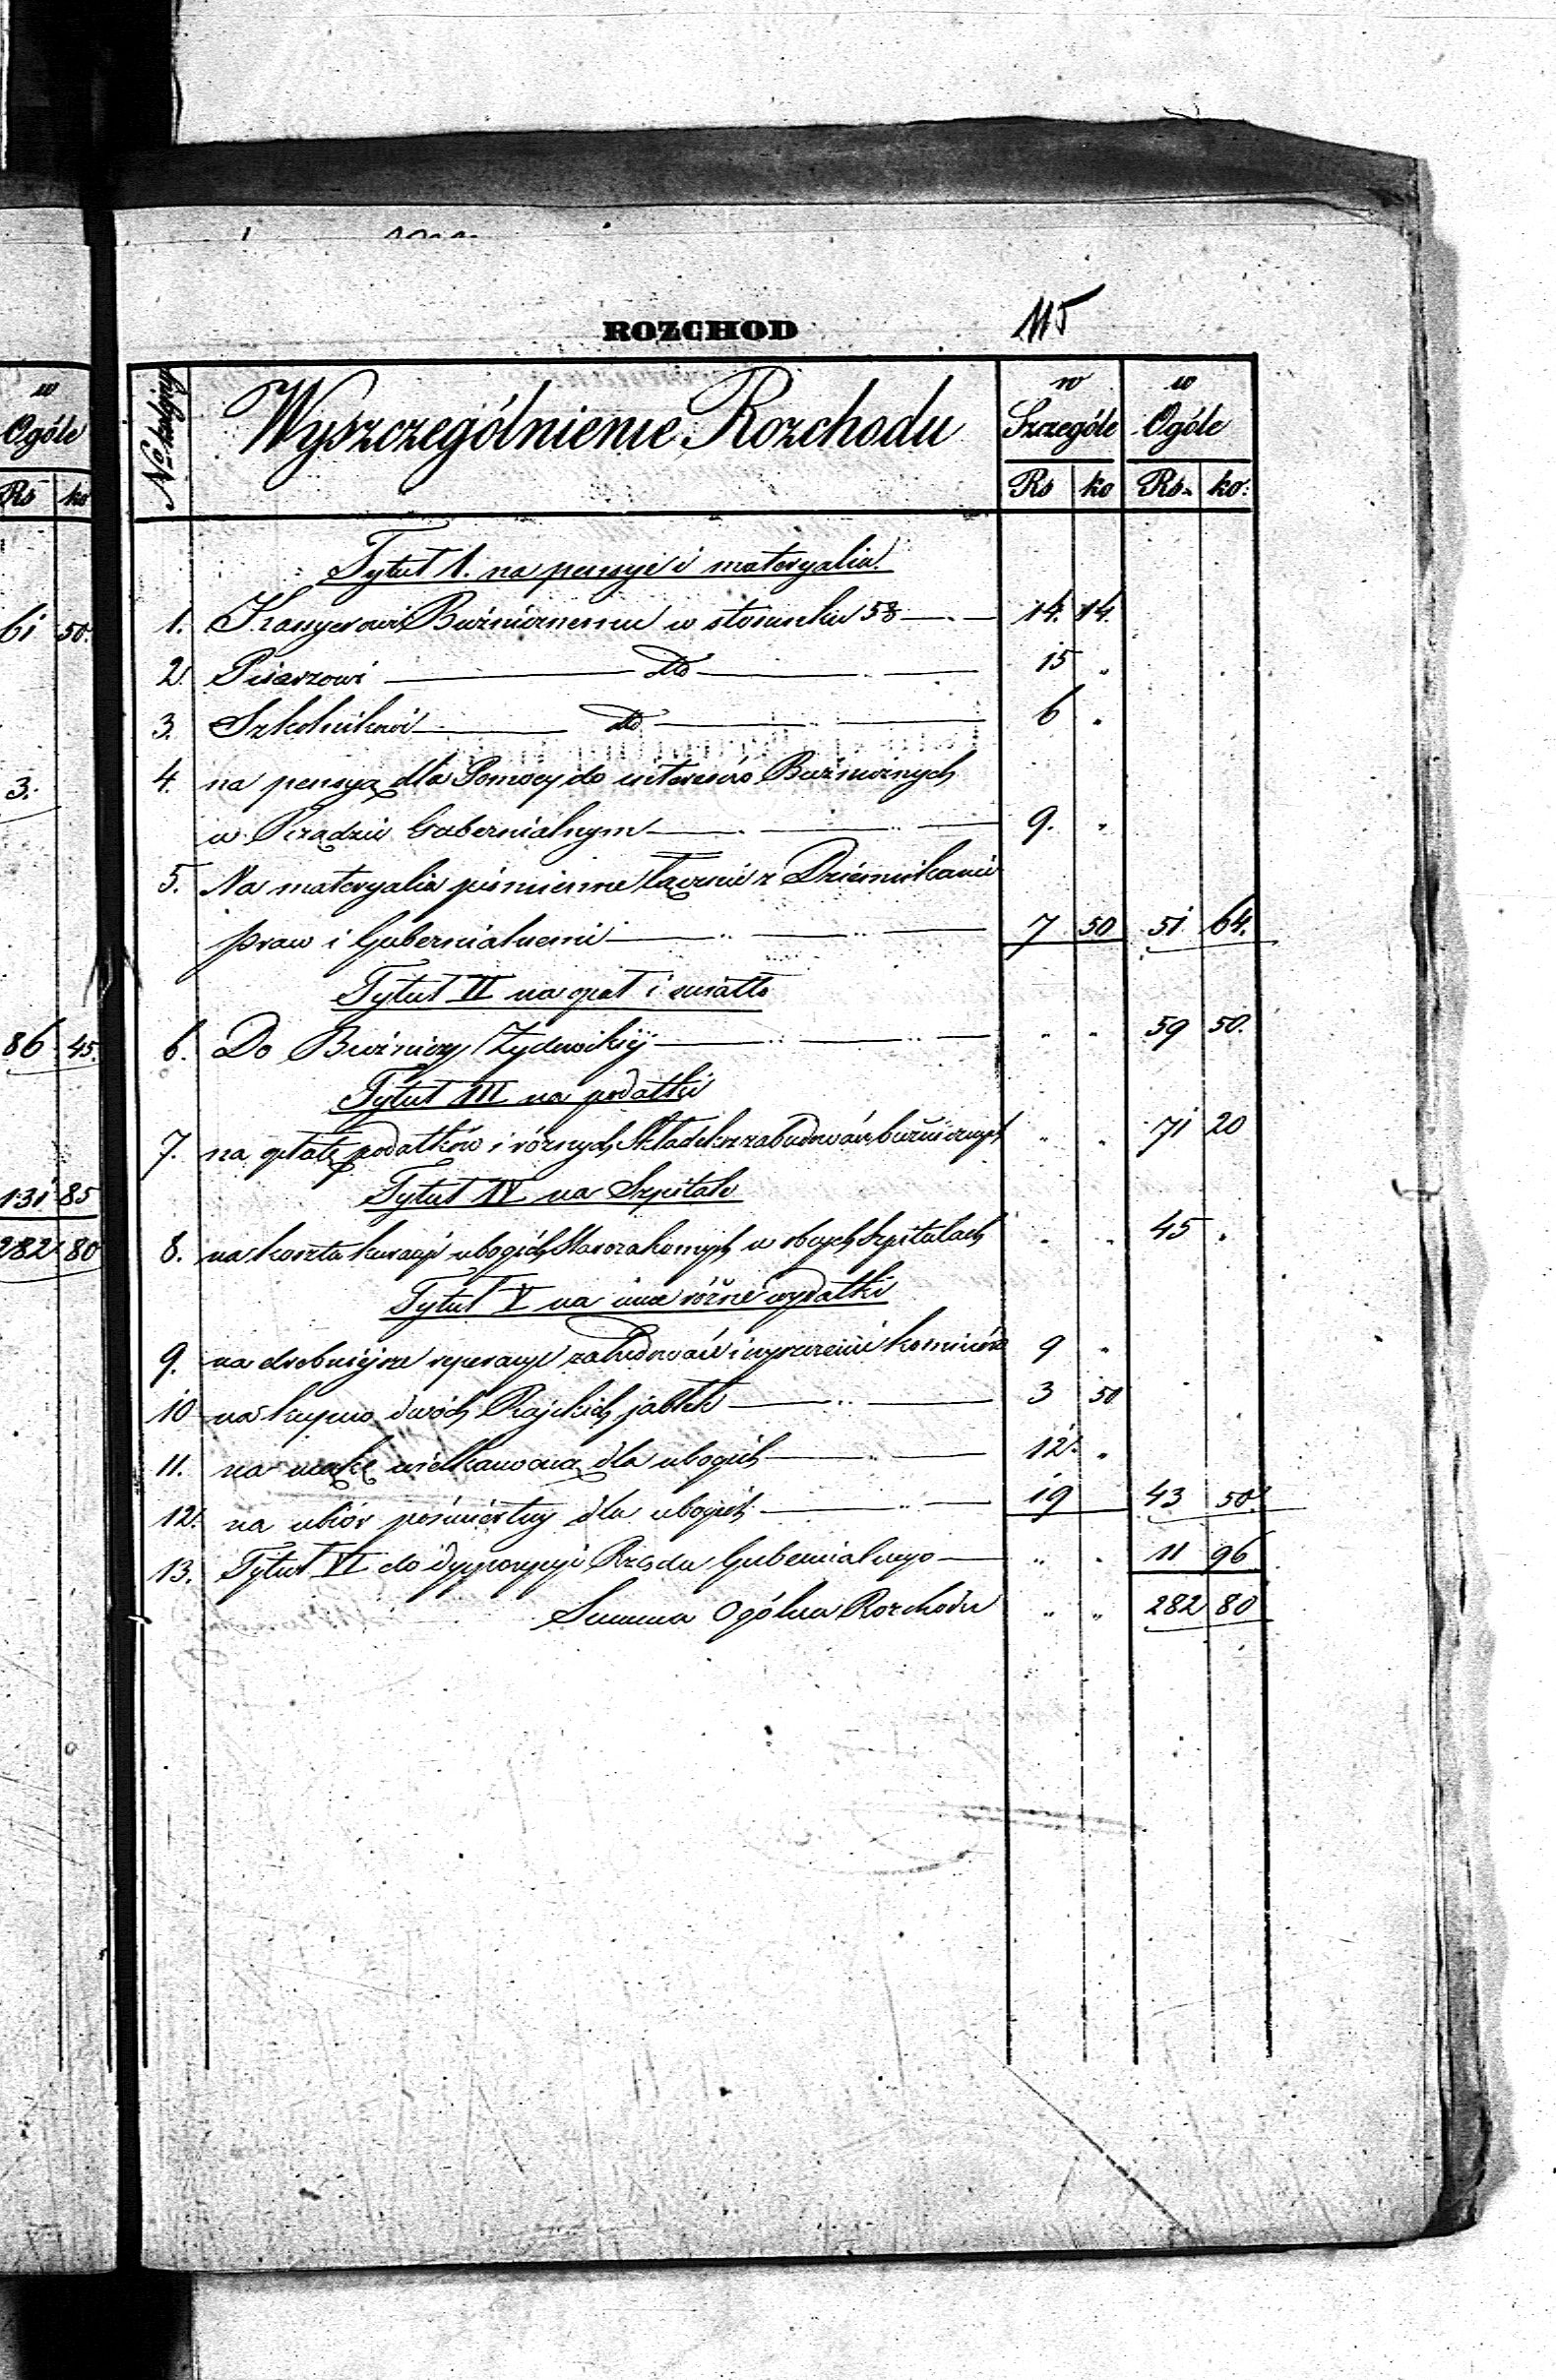 ROZCHOD 115
w
Ogóle
Rs ko
61 50.
3.
86 45.
131 85
282 80
No kolejny Wyszczególnienie Rozchodu w Szczególe w Ogóle
Rs ko Rs. ko:
Tytuł 1. na pensye i materyalia.
1. Kassyerowi Bużnicznemu w stosunku 5% 14. 14.
2. Pisarzowi dto 15 "
3. Szkolnikowi dto 6 "
4. na pensyą dla Pomocy do interesów Bużnicznych
w Rządzie Gubernialnym 9. "
5. Na materyalia piśmienne łącznie z Dziennikami
praw i Gubernialnemi 7 50 51 64.
Tytuł II na opał i swiatło
6. Do Bużnicy Żydowskiÿ " " 59 50.
Tytuł III na podatki
7. na opłatę podatków i różnych Składek z zabudowań bużnicznych " " 71 20
Tytuł IV na Szpitale
8. na koszta kuracyi ubogich Starozakonnych w obcych Szpitalach " " 45 "
Tytuł V na inne różne wydatki
9. na drobniejsze reperacye zabudowań i wycieranie kominów 9 "
10 na kupno dwóch Rajskich jabłek 3 50
11. na mąkę wielkanocną dla ubogich 12. "
12. na ubiór pośmiertny dla ubogich 19 43 50.
13. Tytuł VI do dyspozycyi Rządu Gubernialnego " " 11 96
Summa Ogólna Rozchodu " " 282 80